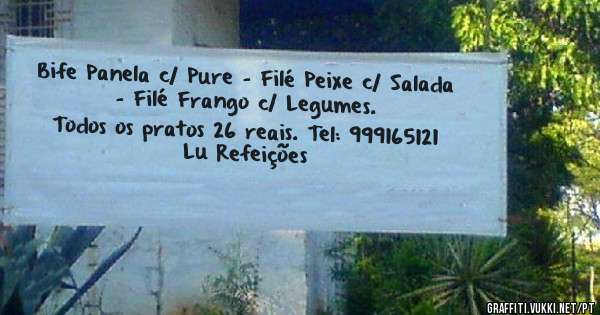 Bife Panela c/ Pure - Filé Peixe c/ Salada
- Filé Frango c/ Legumes.
Todos os pratos 26 reais. Tel: 999165121
Lu Refeições
GRAFFITI.VUKKI.NET/PT